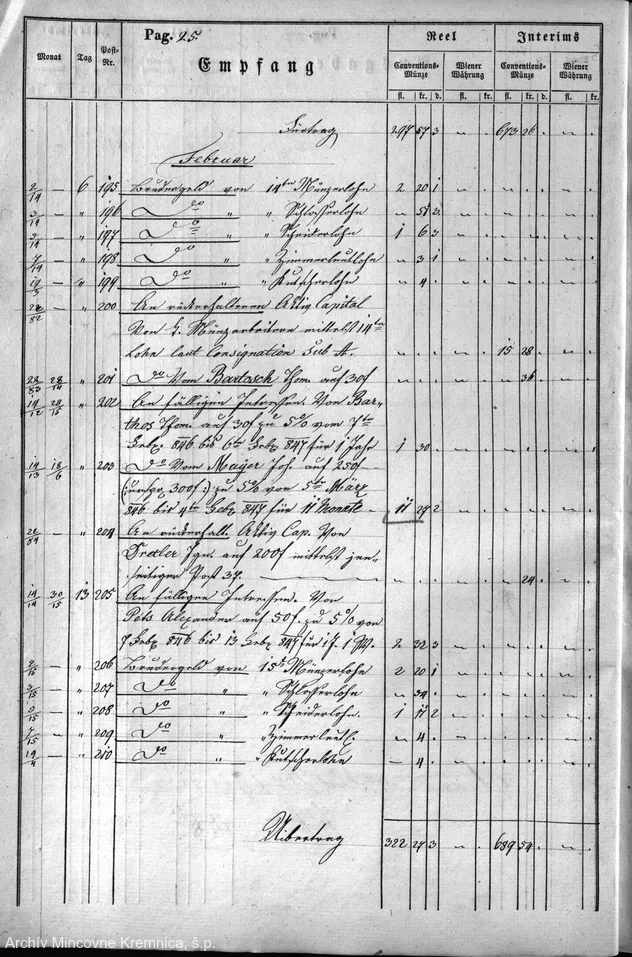 Pag. 25.
Reel Interims
Monat Tag Post-Nr. Empfang Conventions-Münze Wiener Währung Conventions-Münze Wiener Währung
fl. kr. d. fl. kr. fl. kr. d. fl. kr.
Fürtrag 297 57 3 " " 673 26 . " "
Februar
2/14 — 6 195 Brudergeld von 14ten Münzerlohn 2 20 1 " " " " . " "
3/14 — " 196 Do " " Schlosserlohn " 51 3 " " " " . " "
5/14 — " 197 Do " " Scheiderlohn 1 6 3 " " " " . " "
7/14 — " 198 Do " " Zimmerleutlohn " 3 1 " " " " . " "
19/3 — " 199 Do " " Kutscherlohn " 4 . " " " " . " "
22/82 — " 200 An rückerhaltenen Aktiv Capital
Von 7. Münzarbeitern mittelst 14ten
Lohn laut Consignation Sub A. " " . " " 15 28 . " "
22/83 28/14 " 201 Do Vom Bartosch Thom. auf 30f " " . " " " 36 . " "
14/12 28/15 " 202 An fälligen Interessen. Von Bar-
thos Thom. auf 30f zu 5% vom 7ten
Feb. 846 bis 6ten Feb. 847 für 1 Jahr 1 30 " " " " . " "
14/13 18/6 " 203 Do Vom Mayer Joh. auf 250f
(: urspr. 300f :) zu 5% von 5ten März
846 bis 4ten Feb. 847 für 11 Monate 11 27 2 " " " " . " "
22/84 — " 204 An rückerhalt. Aktiv Cap. Von
Drexler Ign. auf 200f mittelst jen-
seitiger Post 37. " " . " " " 24 . " "
14/14 30/15 13 205 An fälligen Interessen. Von
Pets Alexander auf 50f. zu 5% von
7 Feb. 846 bis 13 Feb. 847 für 1 J. 1 W. 2 32 3 " " " " . " "
2/15 — " 206 Brudergeld von 15t Münzerlohn 2 20 1 " " " " . " "
3/15 — " 207 Do " " Schlosserlohn " 34 . " " " " . " "
5/15 — " 208 Do " " Scheiderlohn. 1 11 2 " " " " . " "
7/15 — " 209 Do " " Zimmerleutl. " 4 . " " " " . " "
19/4 — " 210 Do " " Kutscherlohn — 4 . " " " " . " "
Übertrag 322 27 3 " " 689 54 . " "
Archív Mincovne Kremnica, š.p.